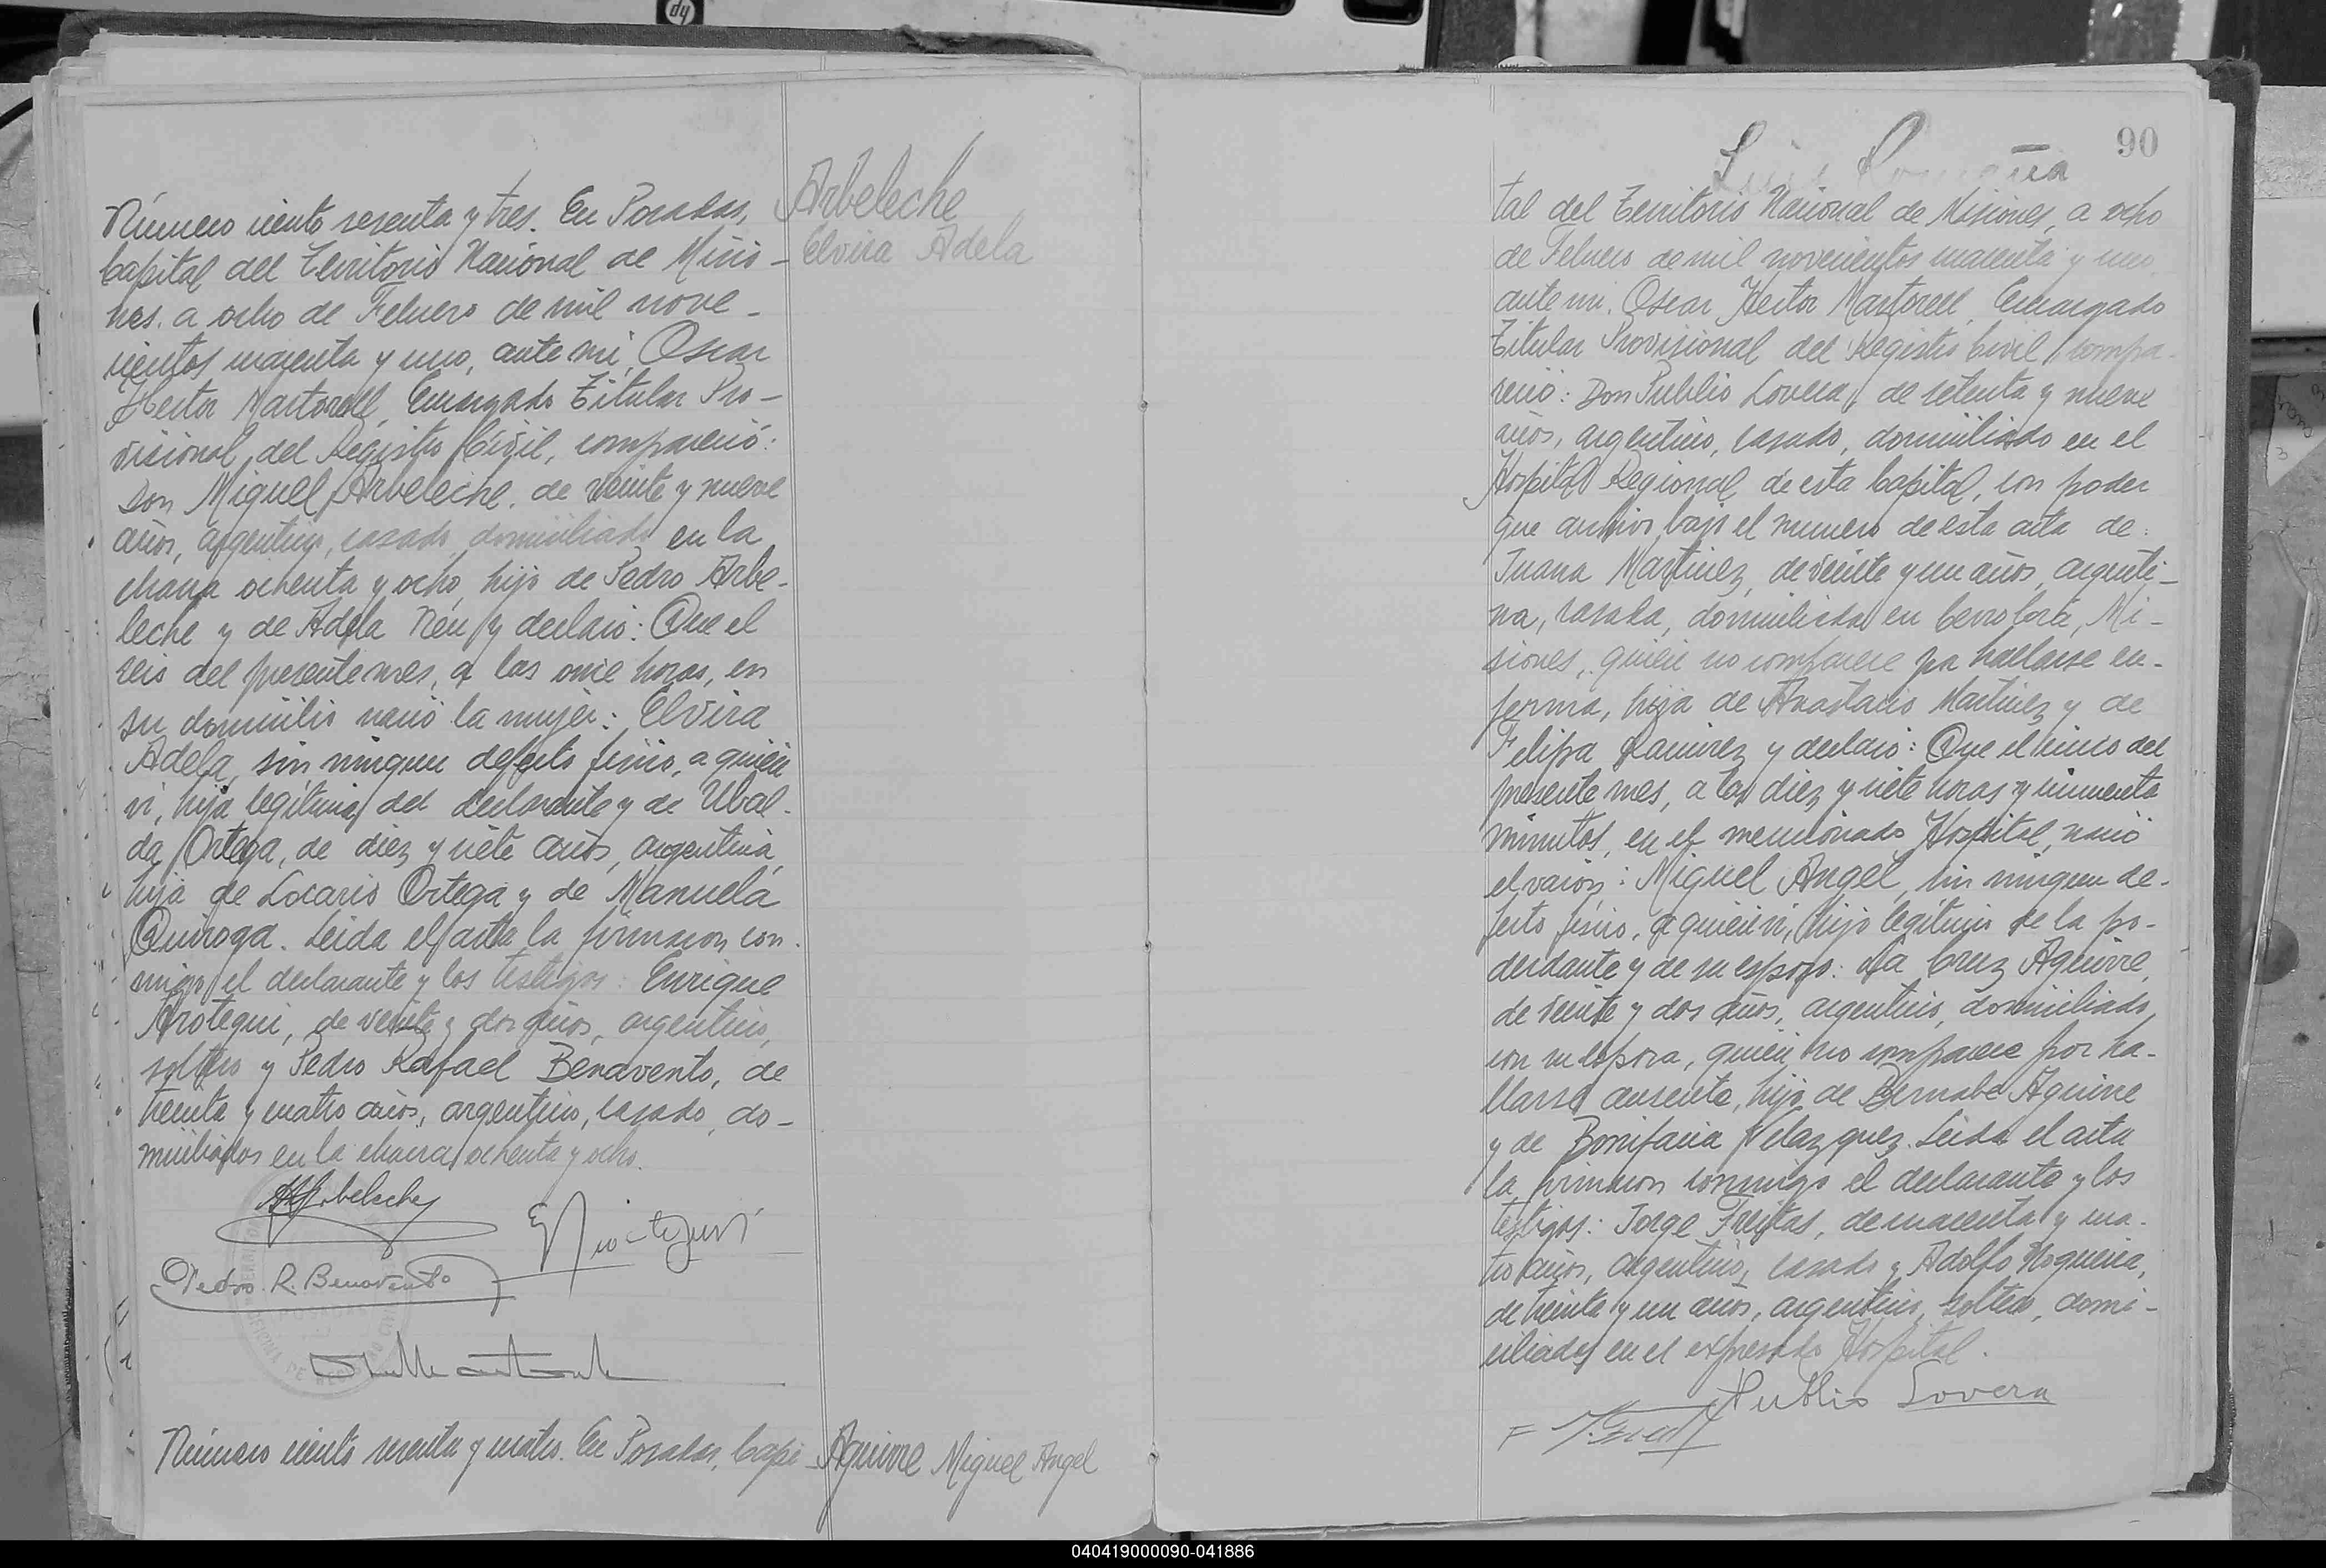 Número ciento sesenta y tres. En Posadas,
Capital del Territorio Nacional de Misio-
nes. a ocho de Febrero de mil nove-
cientos cuarenta y uno, ante mí, Oscar
Hector Martorell, Encargado Titular Pro-
visional, del Registro Civil, compareció:
Don Miguel Arbeleche, de veinte y nueve
años, argentino, casado, domiciliado en la
chacra ochenta y ocho, hijo de Pedro Arbe-
leche y de Adela y declaró: Que el
seis del presente mes, a las once horas, en
su domicilio nació la mujer: Elvira
Adela, sin ningun defecto fisico, a quién
ví, hija legítima del declarante y de Ubal-
da Ortega, de diez y siete años, argentina,
hija de Locario Ortega y de Manuela
Quiroga. Leida el acta la firmaron con-
migo el declarante y los testigos: Enrique
Arotegui, de veinte y dos años, argentino,
soltero y Pedro Rafael Benavento, de
treinta y cuatro años, argentino, casado, do-
miciliados en la chacra ochenta y ocho.
Arbeleche
Pedro R. Benavento
Arbeleche
Elvira Adela
Número ciento sesenta y cuatro. En Posadas, Capi-
Aguirre Miguel Angel
90
Luis Romaña
tal del Territorio Nacional de Misiones, a ocho
de Febrero de mil novecientos cuarenta y uno,
ante mi, Oscar Hector Martorell, Encargado
Titular Provisional del Registro Civil, compa-
reció: Don Publio Lovera, de setenta y nueve
años, argentino, casado, domiciliado en el
Hospital Regional de esta Capital, con poder
que archivo bajo el numero de esta acta de:
Juana Martinez, de veinte y un años, argenti-
na, casada, domiciliada en Cerro Corá, Mi-
siones, quién no comparece por hallarse en-
ferma, hija de Anastacio Martinez y de
Felipa Ramirez y declaró: Que el cinco del
presente mes, a las diez y siete horas y cincuenta
minutos, en el mencionado Hospital, nació
el varón: Miguel Angel, sin ningun de-
fecto fisico, a quién vi, hijo legítimo de la po-
derdante y de su esposo: La Cruz Aguirre,
de veinte y dos años, argentino, domiciliado
con su esposa, quién no comparece por ha-
llarse ausente, hijo de Bernabe Aguirre
y de Bonifacia Velazquez. Leida el acta
la firmaron conmigo el declarante y los
testigos: Jorge Freitas, de cuarenta y cua-
tro años, argentino, casado y Adolfo Nogueira,
de treinta y un años, argentino, soltero, domi-
ciliados en el expresado Hospital.
Publio Lovera
040419000090-041886